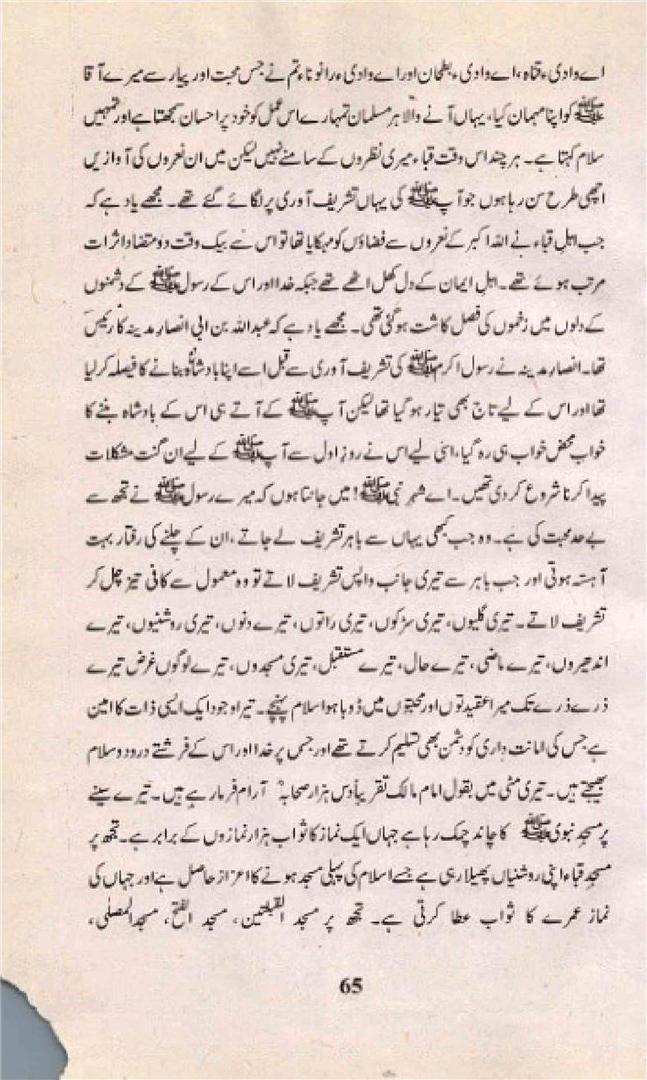 اے وادیء قناہ، اے وادیء بطحان اور اے وادیء رانوناء تم نے جس محبت اور پیار سے میرے آقا
ﷺ کو اپنا مہمان کیا، یہاں آنے والا ہر مسلمان تمہارے اس عمل کو خود پر احسان سمجھتا ہے اور تمہیں
سلام کہتا ہے۔ ہر چند اس وقت قباء میری نظروں کے سامنے نہیں لیکن میں ان نعروں کی آوازیں
اچھی طرح سن رہا ہوں جو آپ ﷺ کی یہاں تشریف آوری پر لگائے گئے تھے۔ مجھے یاد ہے کہ
جب اہلِ قباء نے اللہ اکبر کے نعروں سے فضاؤں کو مہکایا تھا تو اس سے بیک وقت دو متضاد اثرات
مرتب ہوئے تھے۔ اہلِ ایمان کے دل کھل اٹھے تھے جبکہ خدا اور اس کے رسول ﷺ کے دشمنوں
کے دلوں میں زخموں کی فصل کاشت ہو گئی تھی۔ مجھے یاد ہے کہ عبداللہ بن ابی انصارِ مدینہ کا رئیس
تھا۔ انصارِ مدینہ نے رسول اکرم ﷺ کی تشریف آوری سے قبل اسے اپنا بادشاہ بنانے کا فیصلہ کر لیا
تھا اور اس کے لیے تاج بھی تیار ہو گیا تھا لیکن آپ ﷺ کے آتے ہی اس کے بادشاہ بننے کا
خواب محض خواب ہی رہ گیا، اسی لیے اس نے روزِ اول سے آپ ﷺ کے لیے ان گنت مشکلات
پیدا کرنا شروع کر دی تھیں۔ اے شہرِ نبی ﷺ! میں جانتا ہوں کہ میرے رسول ﷺ نے تجھ سے
بے حد محبت کی ہے۔ وہ جب کبھی یہاں سے باہر تشریف لے جاتے، ان کے چلنے کی رفتار بہت
آہستہ ہوتی اور جب باہر سے تیری جانب واپس تشریف لاتے تو وہ معمول سے کافی تیز چل کر
تشریف لاتے۔ تیری گلیوں، تیری سڑکوں، تیری راتوں، تیرے دنوں، تیری روشنیوں، تیرے
اندھیروں، تیرے ماضی، تیرے حال، تیرے مستقبل، تیری مسجدوں، تیرے لوگوں غرض تیرے
ذرے ذرے تک میرا عقیدتوں اور محبتوں میں ڈوبا ہوا سلام پہنچے۔ تیرا وجود ایک ایسی ذات کا امین
ہے جس کی امانت داری کو دشمن بھی تسلیم کرتے تھے اور جس پر خدا اور اس کے فرشتے درود و سلام
بھیجتے ہیں۔ تیری مٹی میں بقول امام مالک تقریباً دس ہزار صحابہؓ آرام فرما رہے ہیں۔ تیرے سینے
پر مسجدِ نبوی ﷺ کا چاند چمک رہا ہے جہاں ایک نماز کا ثواب ہزار نمازوں کے برابر ہے۔ تجھ پر
مسجدِ قباء اپنی روشنیاں پھیلا رہی ہے جسے اسلام کی پہلی مسجد ہونے کا اعزاز حاصل ہے اور جہاں کی
نماز عمرے کا ثواب عطا کرتی ہے۔ تجھ پر مسجد القبلتین، مسجد الفتح، مسجد المصلٰی،
65